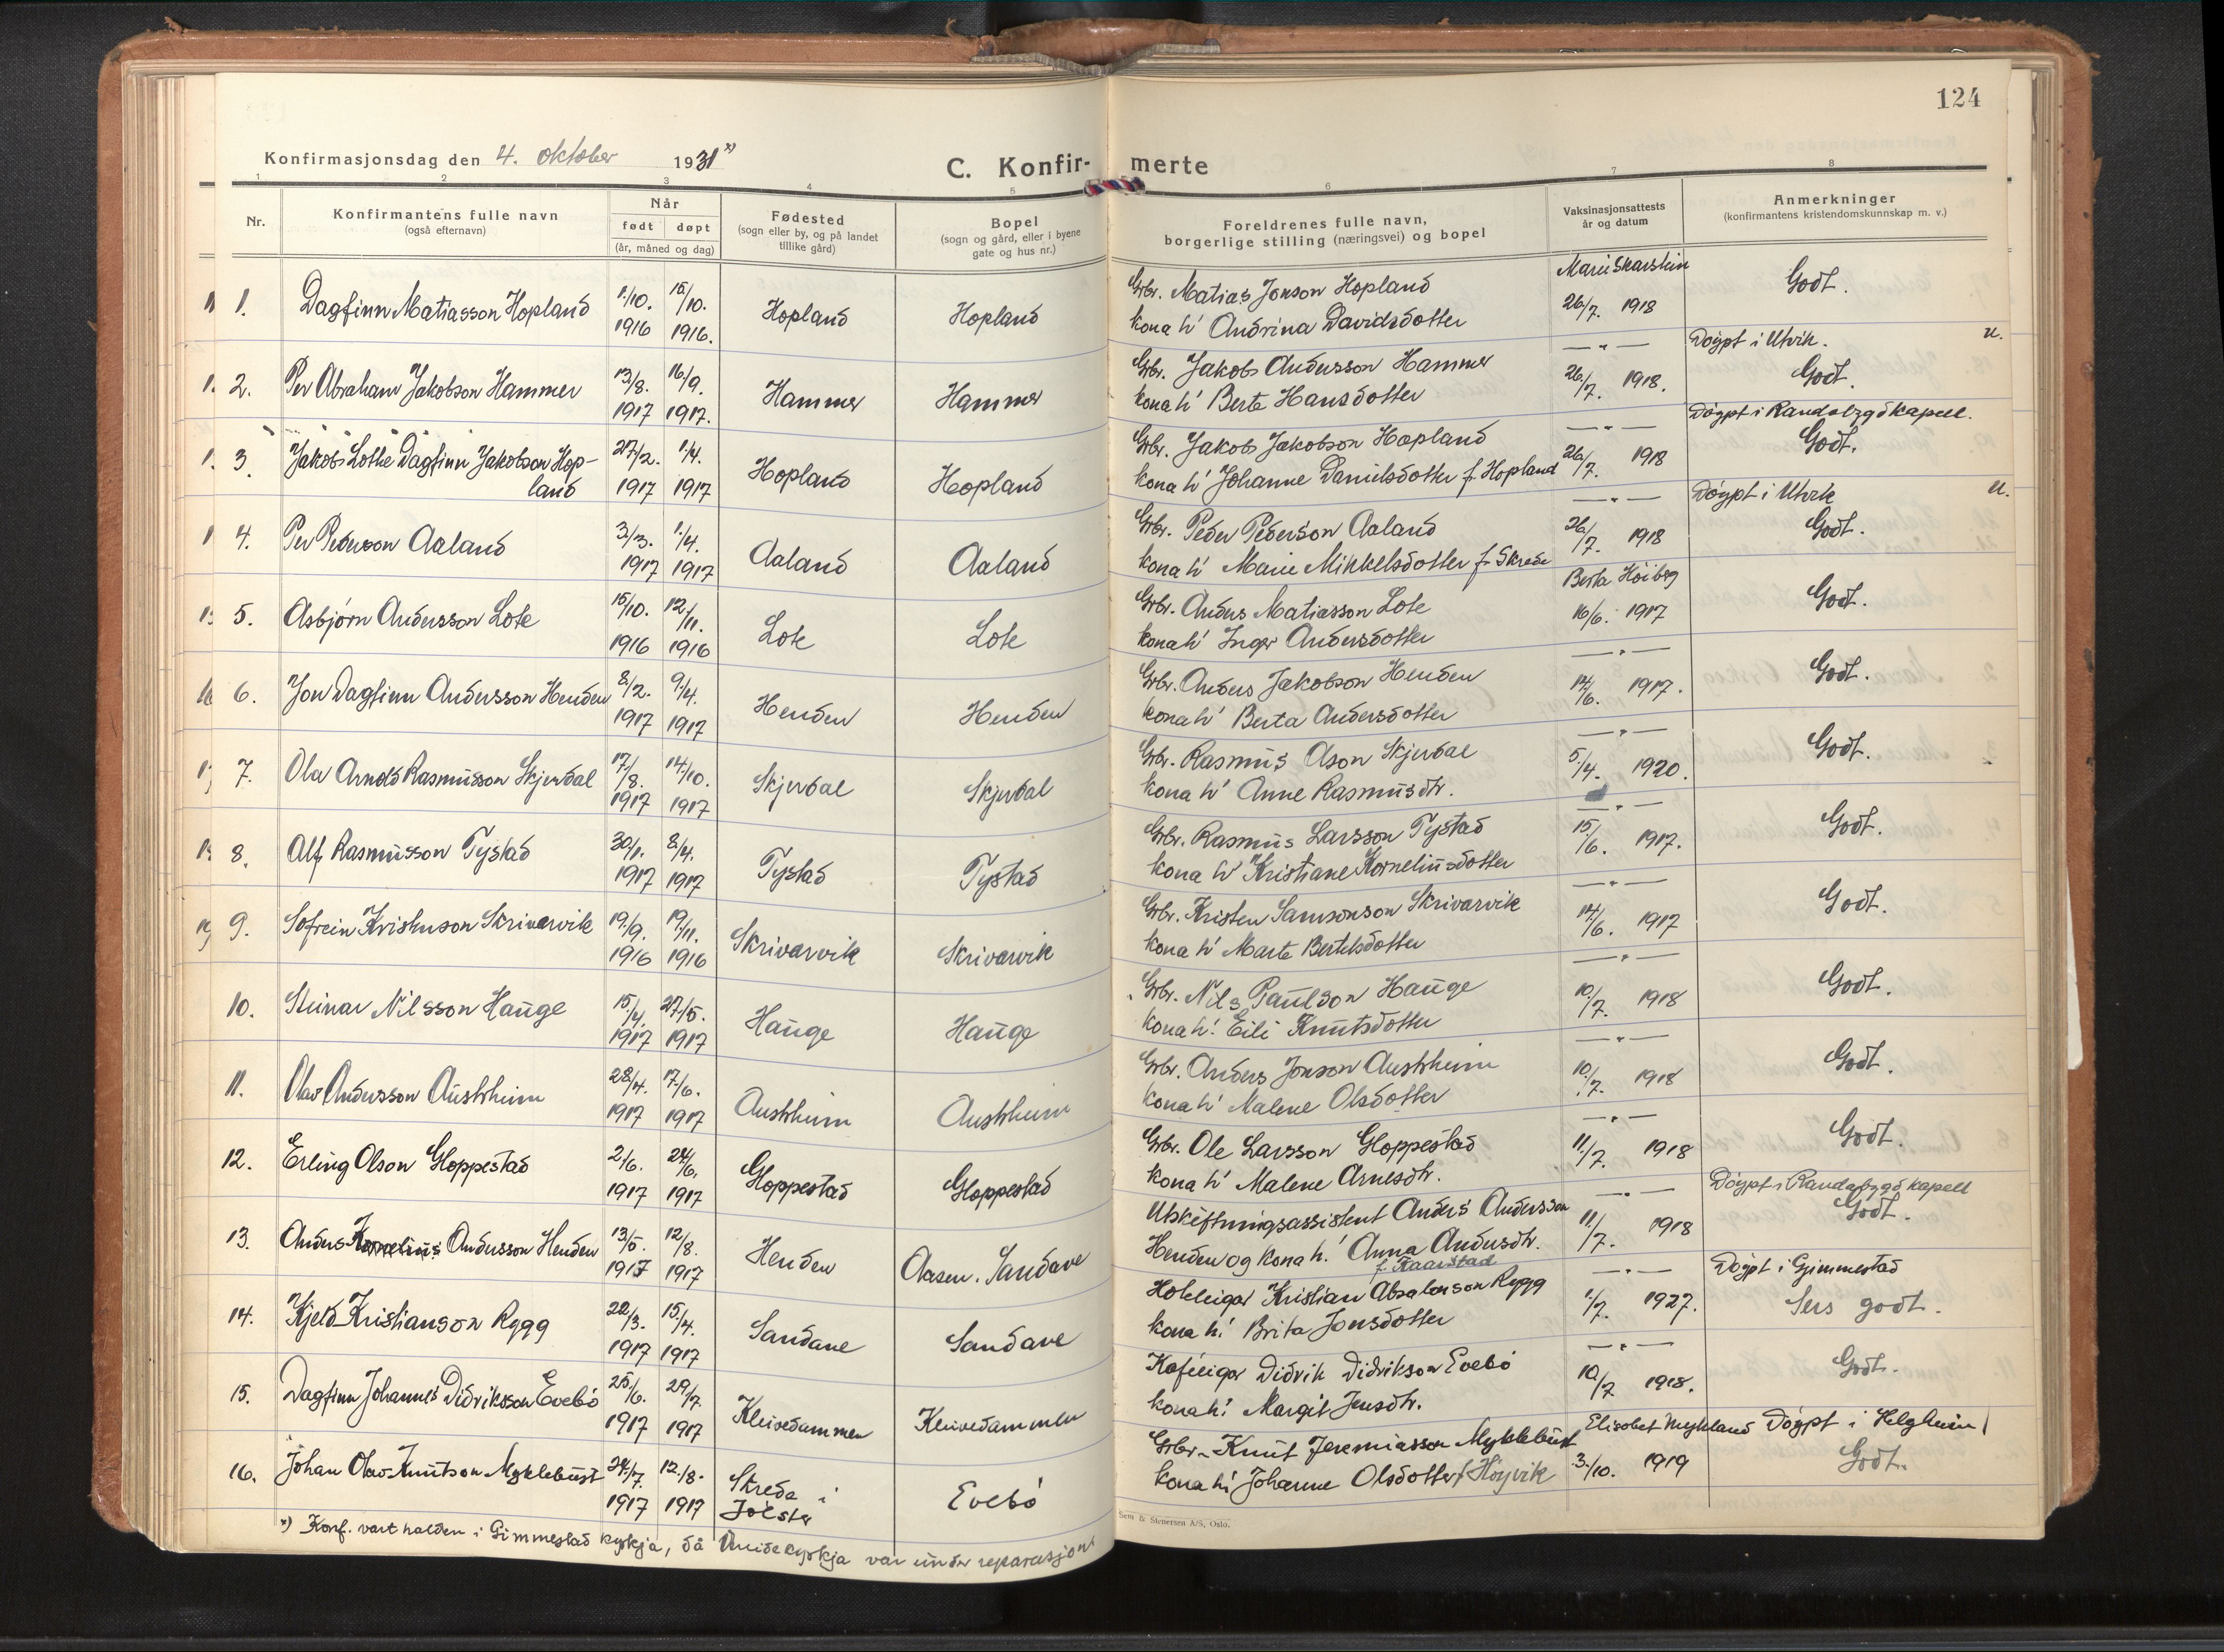 124
Konfirmasjonsdag den 4. oktober 1931 *)
C. Konfirmerte
1 2 3 4 5 6 7 8
Nr. Konfirmantens fulle navn (også efternavn) Når født døpt (år, måned og dag) Fødested (sogn eller by, og på landet tillike gård) Bopel (sogn og gård, eller i byene gate og hus nr.) Foreldrenes fulle navn, borgerlige stilling (næringsvei) og bopel Vaksinasjonsattests år og datum Anmerkninger (konfirmantens kristendomskunnskap m. v.)
1. Dagfinn Matiasson Hopland 1/10. 1916 15/10. 1916. Hopland Hopland Gbr. Matias Jonson Hopland Marie Skarstein Godt.
kona h' Andrina Davidsdotter 26/7. 1918
2. Per Abraham Jakobson Hammer 13/8. 1917 16/9. 1917. Hammer Hammer Gbr. Jakob Andersson Hammer — " — Døypt i Utvik. u.
kona h' Berte Hansdotter 26/7. 1918. Godt.
3. Jakob Lothe Dagfinn Jakobson Hop- 27/2. 1917 1/4. 1917 Hopland Hopland Gbr. Jakob Jakobson Hopland — " — Døypt i Randabygd kapell.
land kona h' Johanne Danielsdotter f. Hopland 26/7. 1918 Godt.
4. Per Pederson Aaland 3/3. 1917 1/4. 1917 Aaland Aaland Gbr. Peder Pederson Aaland — " — Døypt i Utvik u.
kona h' Marie Mikkelsdotter f. Skrede 26/7. 1918 Godt.
5. Asbjørn Andersson Lote 15/10. 1916 12/11. 1916 Lote Lote Gbr. Anders Matiasson Lote Berta Høiberg Godt.
kona h' Inger Andersdotter 16/6. 1917
6. Jon Dagfinn Andersson Henden 8/2. 1917 9/4. 1917 Henden Henden Gbr. Anders Jakobson Henden — " — Godt.
kona h' Berta Andersdotter 14/6. 1917.
7. Ola Arnold Rasmusson Skjerdal 17/8. 1917 14/10. 1917 Skjerdal Skjerdal Gbr. Rasmus Olson Skjerdal — " — Godt.
kona h' Anne Rasmusdtr. 5/4. 1920.
8. Alf Rasmusson Tystad 30/1. 1917 8/4. 1917 Tystad Tystad Gbr. Rasmus Larsson Tystad — " — Godt.
kona h' Kristiane Korneliusdotter 15/6. 1917.
9. Sofrein Kristenson Skrivarvik 19/9. 1916 19/11. 1916 Skrivarvik Skrivarvik Gbr. Kristen Samsonson Skrivarvik — " — Godt.
kona h' Marte Bertelsdotter 14/6. 1917
10. Steinar Nilsson Hauge 15/4. 1917 27/5. 1917 Hauge Hauge Gbr. Nils Paulson Hauge — " — Godt.
kona h' Eili Knutsdotter 10/7. 1918
11. Olav Andersson Austrheim 28/4. 1917 17/6. 1917 Austrheim Austrheim Gbr. Anders Jonson Austrheim — " — Godt.
kona h' Malene Olsdotter 10/7. 1918
12. Erling Olson Gloppestad 2/6. 1917 24/6. 1917 Gloppestad Gloppestad Gbr. Ole Larsson Gloppestad — " — Godt.
kona h' Malene Arnesdtr. 11/7. 1918
13. Anders Kornelius Andersson Henden 13/5. 1917 12/8. 1917 Henden Aasen. Sandane Utskiftningsassistent Anders Andersson — " — Døypt i Randabygd kapell
Henden og kona h.' Anna Andersdtr. 11/7. 1918 Godt.
f. Kaarstad
14. Kjeld Kristianson Rygg 22/3. 1917 15/4. 1917 Sandane Sandane Hoteleigar Kristian Absalonson Rygg — " — Døypt i Gimmestad
kona h' Brita Jonsdotter 1/7. 1927. Sers godt.
15. Dagfinn Johannes Didrikson Evebø 25/6. 1917 29/7. 1917 Kleivedammen Kleivedammen Kafeeigar Didrik Didrikson Evebø — " — Godt.
kona h' Margit Jensdtr. 10/7 1918.
16. Johan Olav Knutson Myklebust 24/7. 1917 12/8. 1917 Skreda i Jølster Evebø Gbr. Knut Jeremiasson Myklebust Elisabet Mykland Døypt i Helgheim
kona h' Johanne Olsdotter f. Høyvik 3/10. 1919 Godt.
*) Konf. vart halden i Gimmestad kyrkja, då Vereidekyrkja var under reparasjon.
Sem & Stenersen A/S, Oslo.